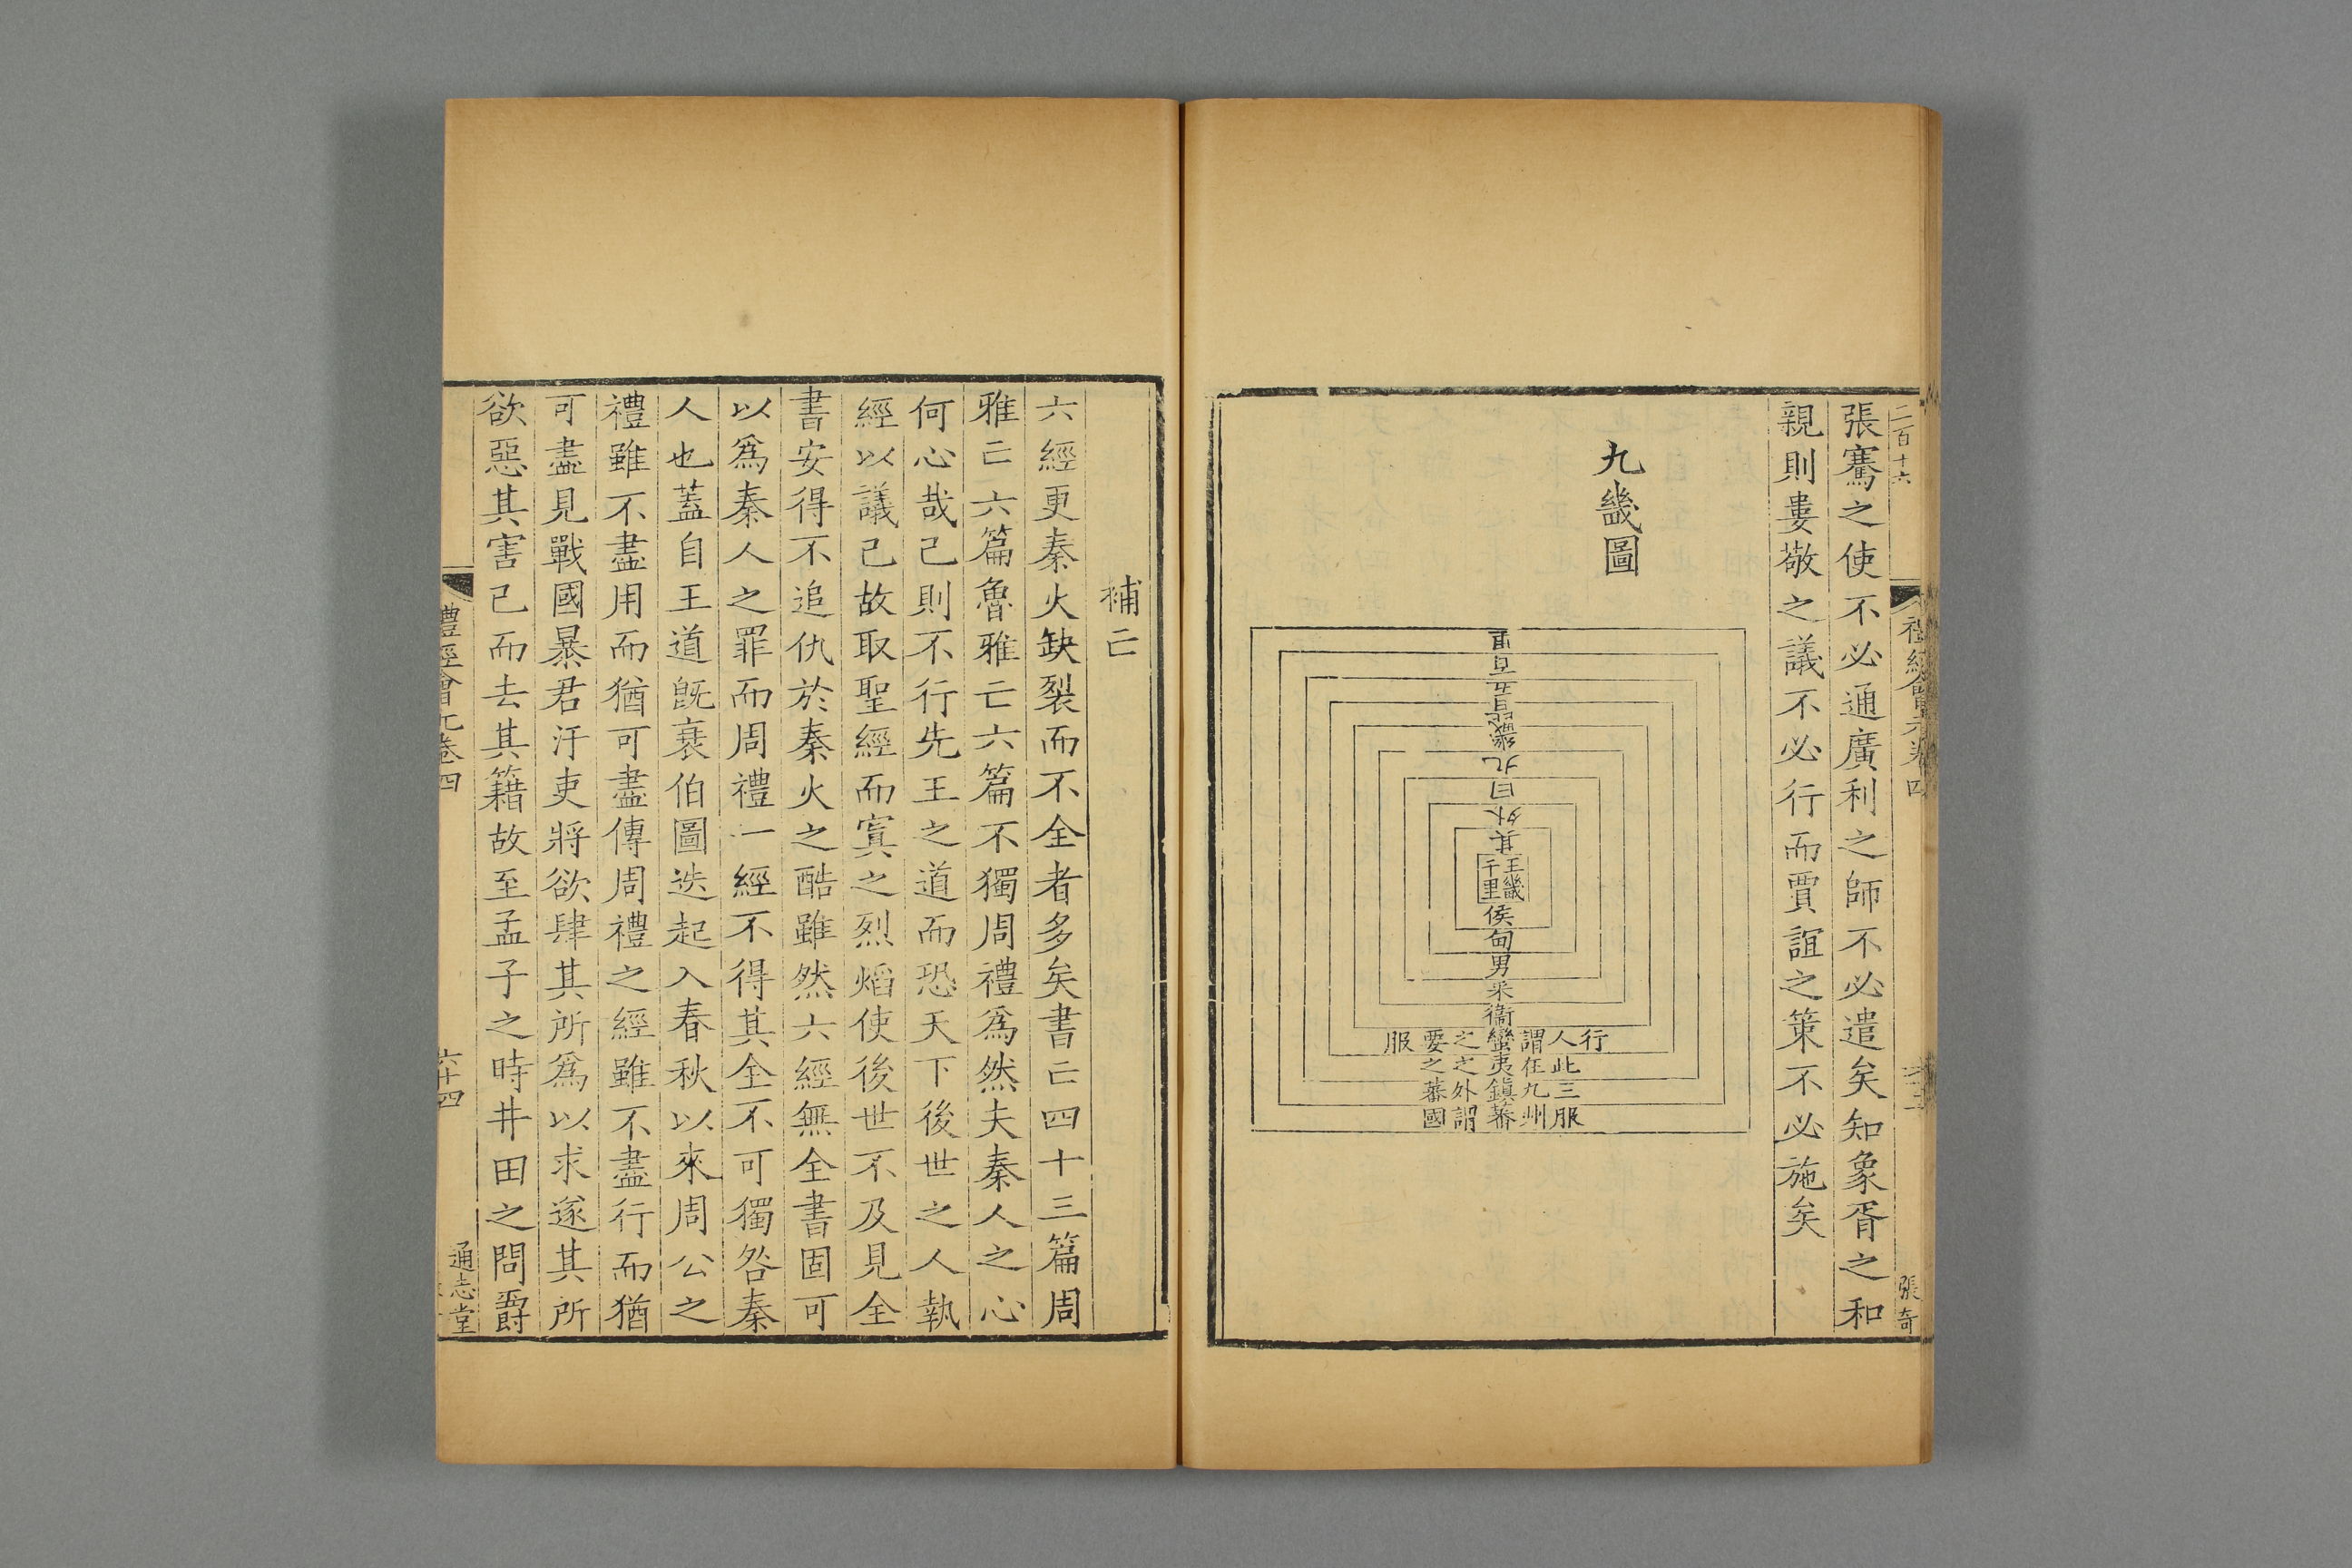 二百十六
禮經會元卷四
張奇
張騫之使不必通廣利之師不必遣矣知象胥之和
親則婁敬之議不必行而賈誼之策不必施矣
九畿圖
王畿
千里
其外曰九畿畿皆五百里
侯甸男采衞蠻夷鎮蕃
行人謂之要服
此三服在九州之外謂之蕃國
補亡
六經更秦火缺裂而不全者多矣書亡四十三篇周
雅亡六篇魯雅亡六篇不獨周禮爲然夫秦人之心
何心哉己則不行先王之道而恐天下後世之人執
經以議己故取聖經而寘之烈焰使後世不及見全
書安得不追仇於秦火之酷雖然六經無全書固可
以爲秦人之罪而周禮一經不得其全不可獨咎秦
人也蓋自王道旣衰伯圖迭起入春秋以來周公之
禮雖不盡用而猶可盡傳周禮之經雖不盡行而猶
可盡見戰國暴君汙吏將欲肆其所爲以求遂其所
欲惡其害己而去其籍故至孟子之時井田之問爵
禮經會元卷四
六十四
通志堂